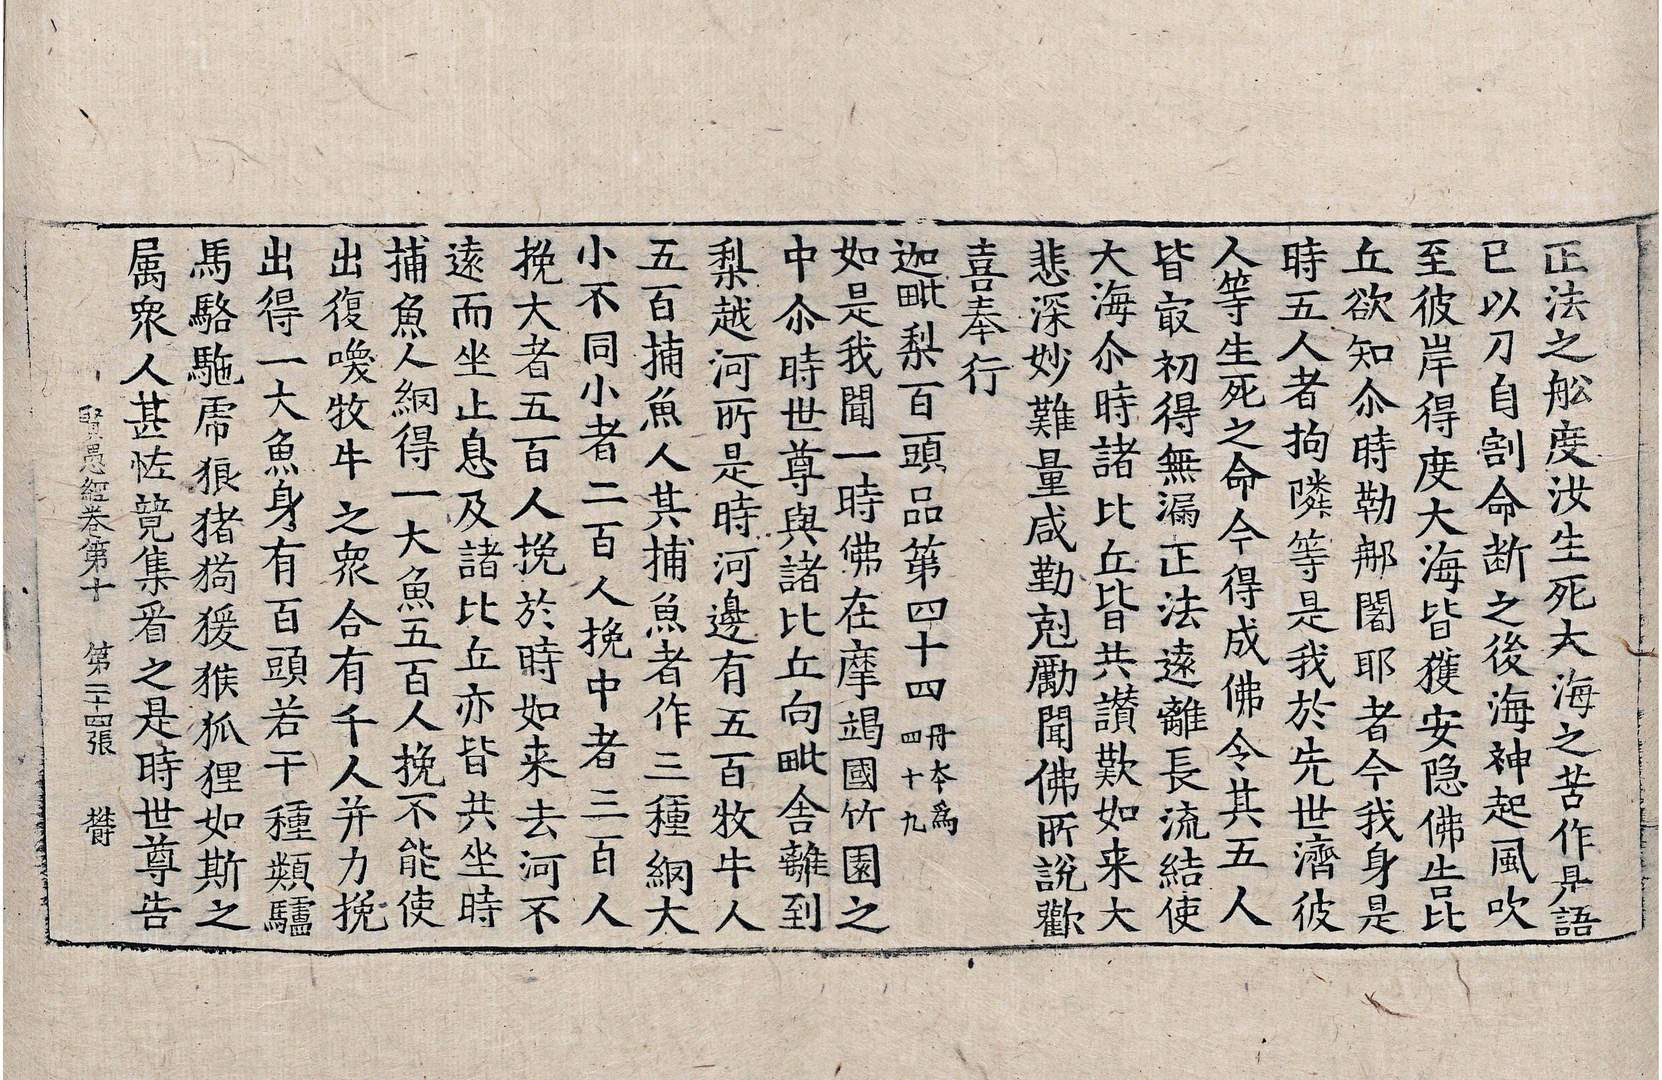 正法之舩度汝生死大海之苦作是語
已以刀自割命断之後海神起風吹
至彼岸得度大海皆獲安隐佛告比
丘欲知尒時勒那闍耶者今我身是
時五人者拘隣等是我於先世濟彼
人等生死之命今得成佛令其五人
皆㝡初得無漏正法遠離長流結使
大海尒時諸比丘皆共讃歎如来大
悲深妙難量咸勤剋勵聞佛所說歡
喜奉行
迦毗梨百頭品第四十四 丹夲爲四十九
如是我聞一時佛在摩竭國竹園之
中尒時世尊與諸比丘向毗舍離到
梨越河所是時河邊有五百牧牛人
五百捕魚人其捕魚者作三種網大
小不同小者二百人挽中者三百人
挽大者五百人挽於時如来去河不
遠而坐止息及諸比丘亦皆共坐時
捕魚人網得一大魚五百人挽不能使
出復喚牧牛之衆合有千人并力挽
出得一大魚身有百頭若干種類驢
馬駱駞虎狼猪狗猨猴狐狸如斯之
属衆人甚恠競集看之是時世尊告
賢愚經卷第十 第二十四張 欝